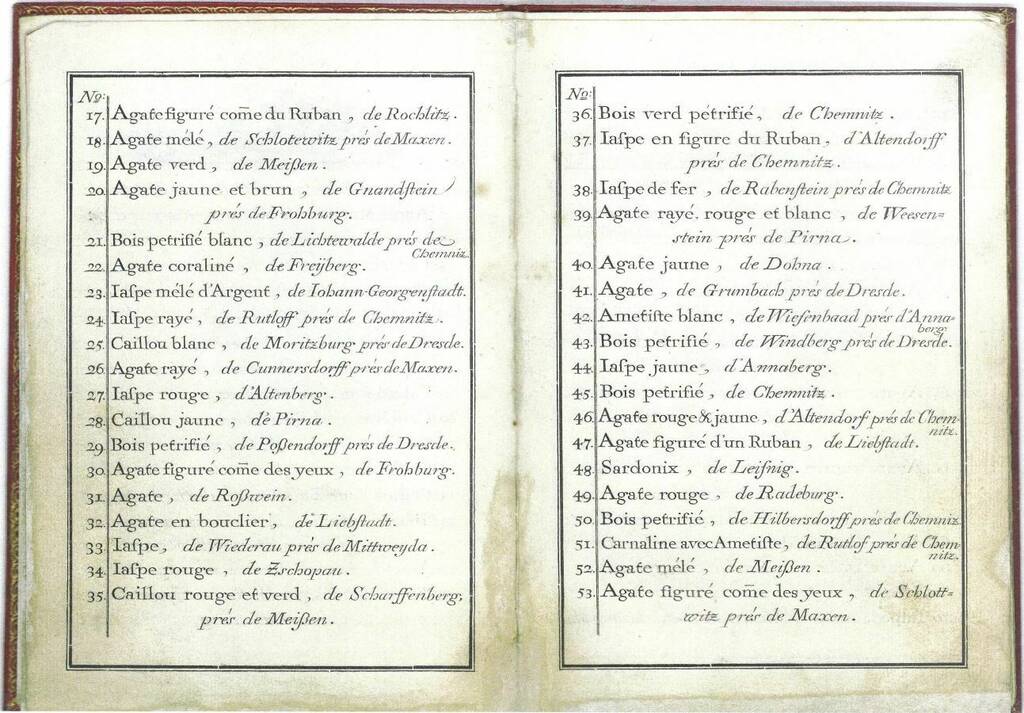 No:
17. Agate figuré com̄e du Ruban, de Rochlitz.
18. Agate mélé, de Schlotewitz prés de Maxen.
19. Agate verd, de Meißen.
20. Agate jaune et brun, de Gnandſtein
prés de Frohburg.
21. Bois petrifié blanc, de Lichtewalde prés de
Chemniz.
22. Agate coraliné, de Freÿberg.
23. Iaſpe mélé d'Argent, de Iohann-Georgenſtadt.
24. Iaſpe rayé, de Rutloff prés de Chemnitz.
25. Caillou blanc, de Moritzburg prés de Dresde.
26. Agate rayé, de Cunnersdorff prés de Maxen.
27. Iaſpe rouge, d'Altenberg.
28. Caillou jaune, de Pirna.
29. Bois petrifié, de Poßendorff prés de Dresde.
30. Agate figuré com̄e des yeux, de Frohburg.
31. Agate, de Roßwein.
32. Agate en bouclier, de Liebſtadt.
33. Iaſpe, de Wiederau prés de Mittweyda.
34. Iaſpe rouge, de Zschopau.
35. Caillou rouge et verd, de Scharffenberg,
prés de Meißen.
No:
36. Bois verd pétrifié, de Chemnitz.
37. Iaſpe en figure du Ruban, d'Altendorff
prés de Chemnitz.
38. Iaſpe de fer, de Rabenſtein prés de Chemnitz
39. Agate rayé. rouge et blanc, de Weesen=
stein prés de Pirna.
40. Agate jaune, de Dohna.
41. Agate, de Grumbach prés de Dresde.
42. Ametiſte blanc, de Wieſenbaad prés d'Anna-
berg.
43. Bois petrifié, de Windberg prés de Dresde.
44. Iaſpe jaune, d'Annaberg.
45. Bois petrifié, de Chemnitz.
46. Agate rouge & jaune, d'Altendorf prés de Chem-
nitz.
47. Agate figuré d'un Ruban, de Liebſtadt.
48. Sardonix, de Leiſnig.
49. Agate rouge, de Radeburg.
50. Bois petrifié, de Hilbersdorff prés de Chemniz
51. Carnaline avec Ametiſte, de Rutlof prés de Chem-
nitz.
52. Agate mélé, de Meißen.
53. Agate figuré com̄e des yeux, de Schlott=
witz prés de Maxen.